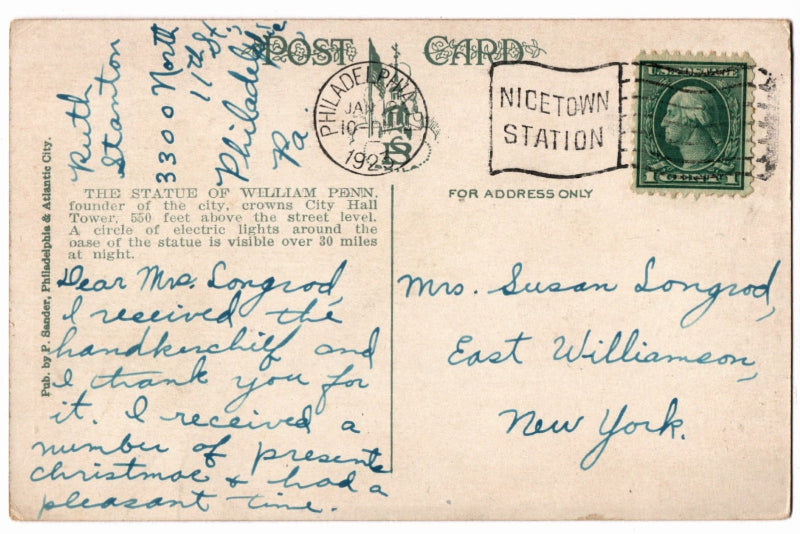 POST CARD
Ruth
Stanton
3300 North
11th St
Philadelphia
Pa.
PHILADELPHIA
JAN
10
1923
NICETOWN
STATION
1
THE STATUE OF WILLIAM PENN,
founder of the city, crowns City Hall
Tower, 550 feet above the street level.
A circle of electric lights around the
base of the statue is visible over 30 miles
at night.
FOR ADDRESS ONLY
Pub. by P. Sander, Philadelphia & Atlantic City.
Dear Mrs. Longrod,
I received the
handkerchief and
I thank you for
it. I received a
number of presents
christmas & had a
pleasant time.
Mrs. Susan Longrod,
East Williamson,
New York.